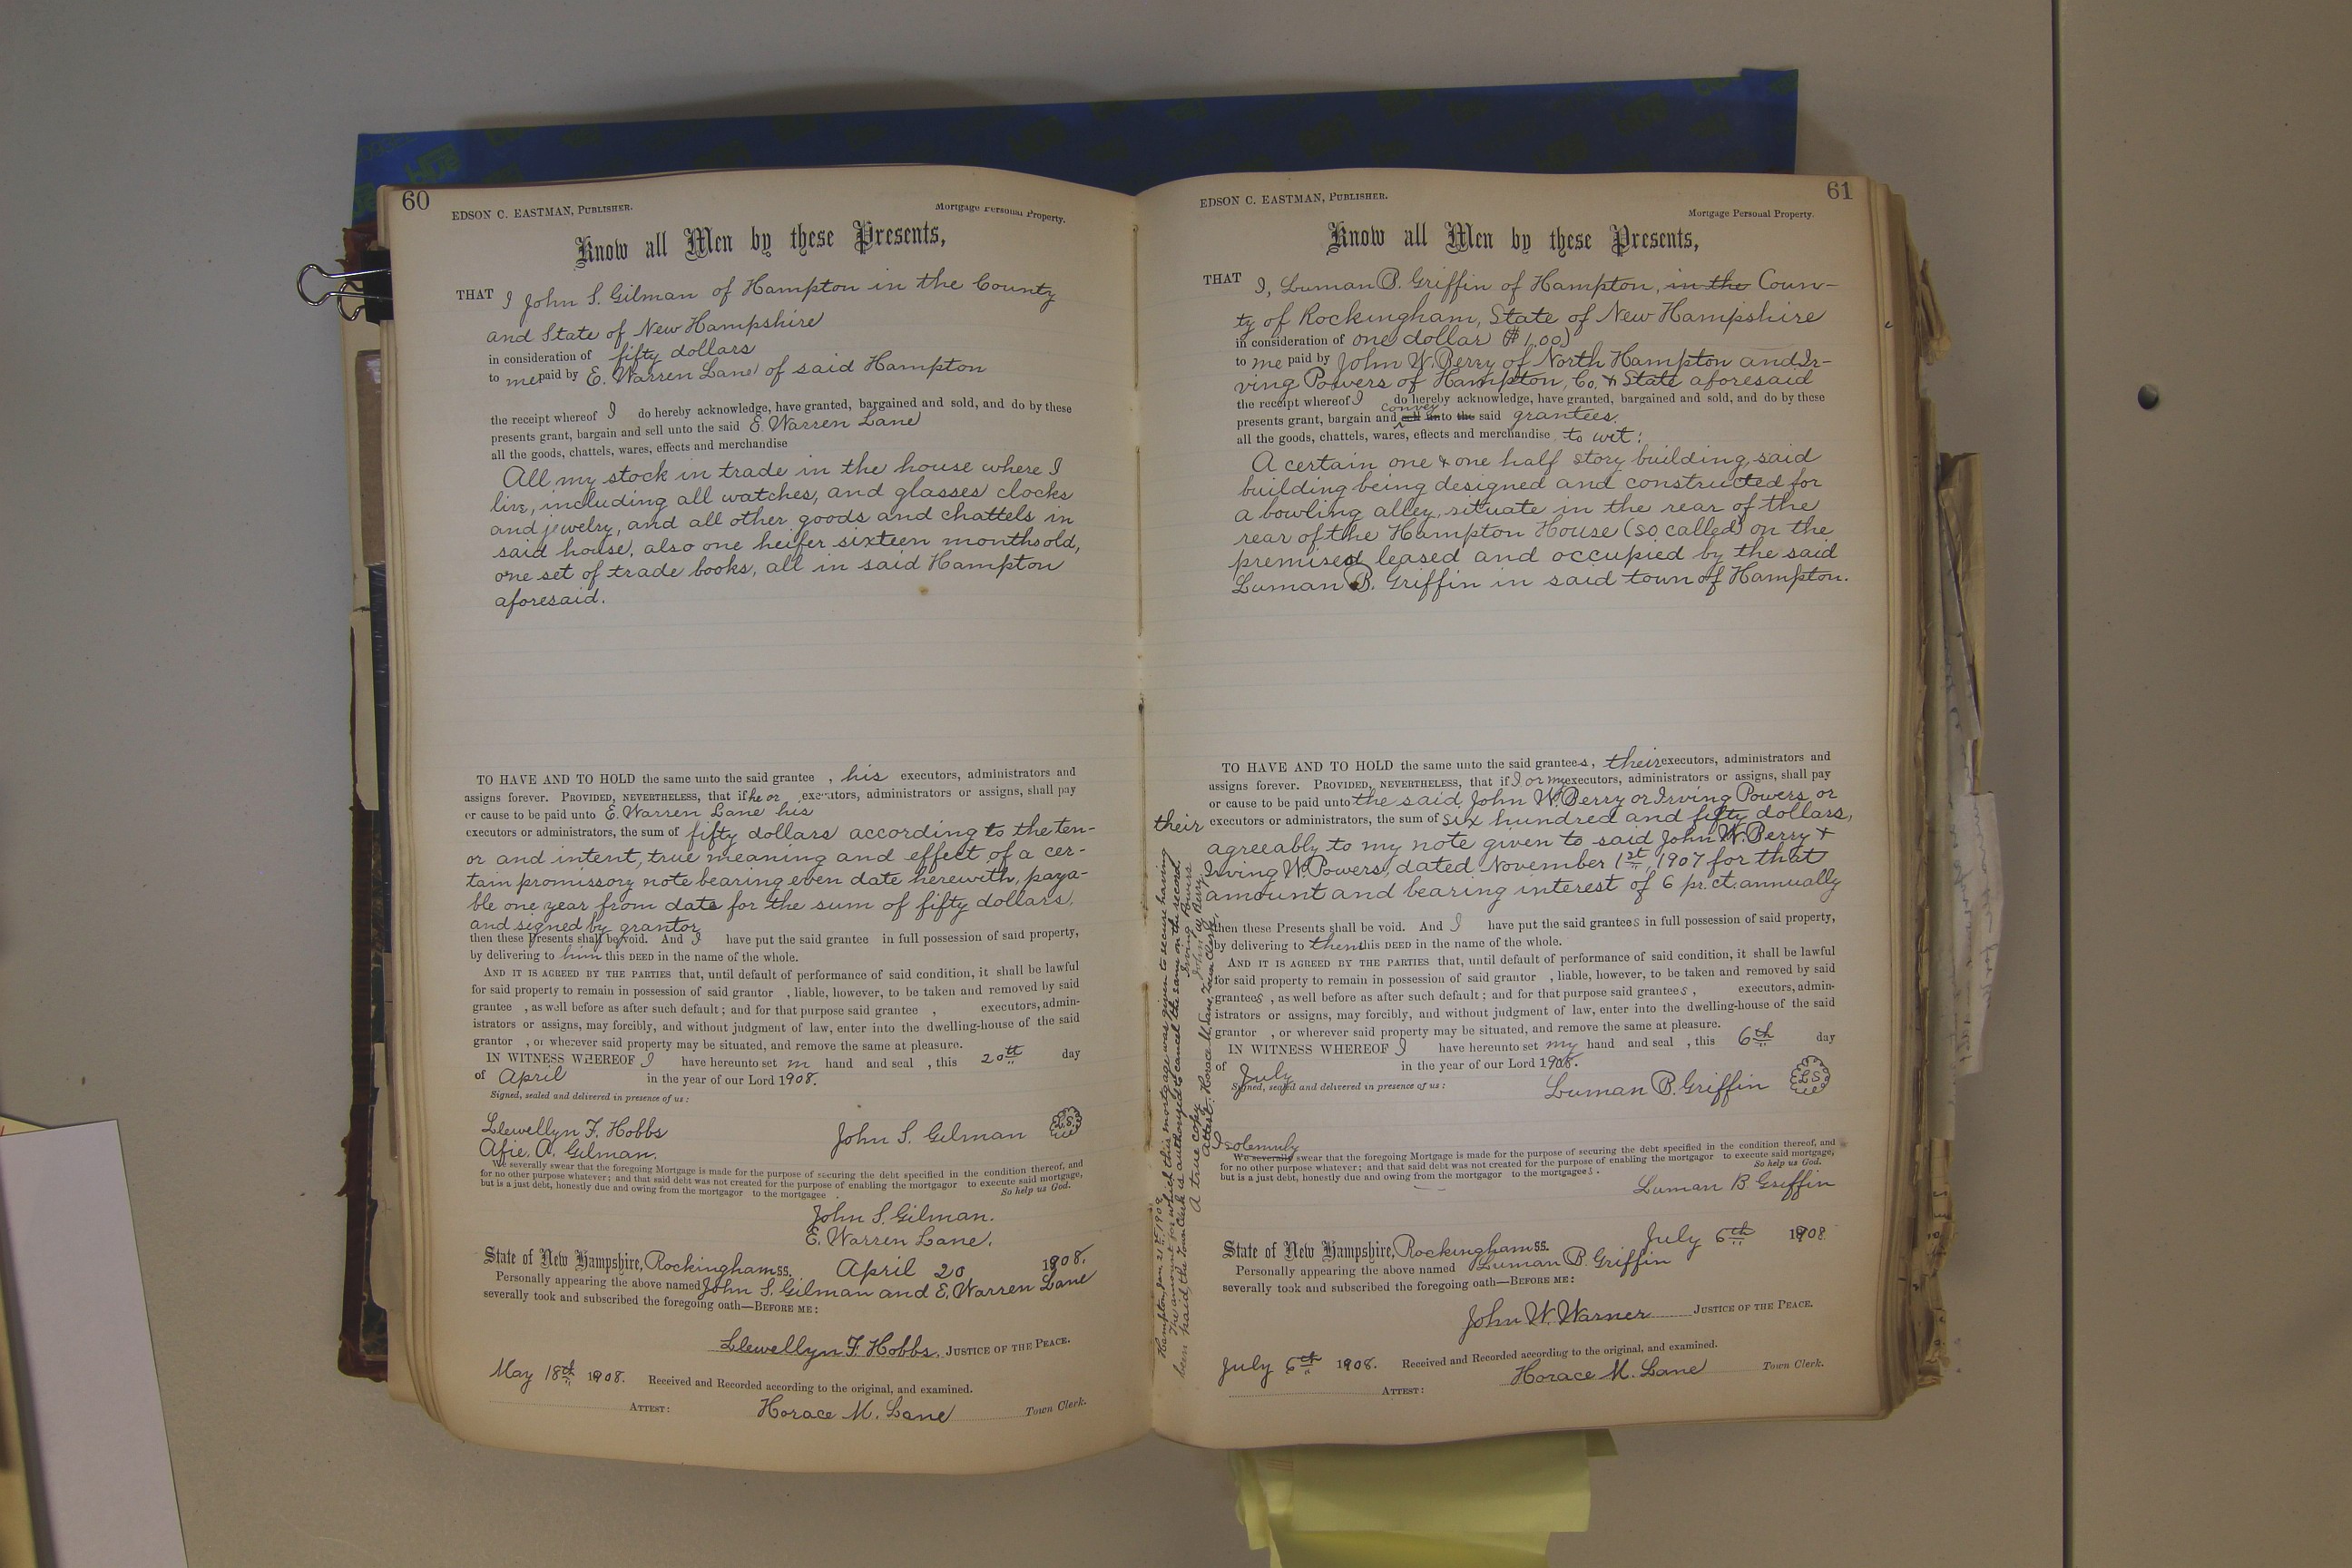 60
EDSON C. EASTMAN, PUBLISHER.
Mortgage Personal Property.
Know all Men by these Presents,
THAT I John S. Gilman of Hampton in the County
and State of New Hampshire
in consideration of fifty dollars
to me paid by E. Warren Lane of said Hampton
the receipt whereof I do hereby acknowledge, have granted, bargained and sold, and do by these
presents grant, bargain and sell unto the said E. Warren Lane
all the goods, chattels, wares, effects and merchandise
All my stock in trade in the house where I
live, including all watches, and glasses clocks
and jewelry, and all other goods and chattels in
said house, also one heifer sixteen months old,
one set of trade books, all in said Hampton
aforesaid.
TO HAVE AND TO HOLD the same unto the said grantee , his executors, administrators and
assigns forever. PROVIDED, NEVERTHELESS, that if he or executors, administrators or assigns, shall pay
or cause to be paid unto E. Warren Lane his
executors or administrators, the sum of fifty dollars according to the ten-
or and intent, true meaning and effect of a cer-
tain promissory note bearing even date herewith, paya-
ble one year from date for the sum of fifty dollars,
and signed by grantor
then these Presents shall be void. And I have put the said grantee in full possession of said property,
by delivering to him this DEED in the name of the whole.
AND IT IS AGREED BY THE PARTIES that, until default of performance of said condition, it shall be lawful
for said property to remain in possession of said grantor , liable, however, to be taken and removed by said
grantee , as well before as after such default; and for that purpose said grantee , executors, admin-
istrators or assigns, may forcibly, and without judgment of law, enter into the dwelling-house of the said
grantor , or wherever said property may be situated, and remove the same at pleasure.
IN WITNESS WHEREOF I have hereunto set m hand and seal , this 20tt day
of April in the year of our Lord 1908.
Signed, sealed and delivered in presence of us:
Llewellyn F. Hobbs
Afie. A. Gilman.
John S. Gilman L.S.
We severally swear that the foregoing Mortgage is made for the purpose of securing the debt specified in the condition thereof, and
for no other purpose whatever; and that said debt was not created for the purpose of enabling the mortgagor to execute said mortgage,
but is a just debt, honestly due and owing from the mortgagor to the mortgagee . So help us God.
John S. Gilman.
E. Warren Lane.
State of New Hampshire, Rockingham ss. April 20 1908.
Personally appearing the above named John S. Gilman and E. Warren Lane
severally took and subscribed the foregoing oath—BEFORE ME:
Llewellyn F Hobbs, JUSTICE OF THE PEACE.
May 18th 1908. Received and Recorded according to the original, and examined.
ATTEST: Horace M. Lane Town Clerk.
61
EDSON C. EASTMAN, PUBLISHER.
Mortgage Personal Property.
Know all Men by these Presents,
THAT I, Luman B. Griffin of Hampton, in the Coun-
ty of Rockingham, State of New Hampshire
in consideration of one dollar ($1.00)
to me paid by John W. Berry of North Hampton and Ir-
ving Powers of Hampton, Co. & State aforesaid
the receipt whereof I do hereby acknowledge, have granted, bargained and sold, and do by these
presents grant, bargain and sell convey unto the said grantees.
all the goods, chattels, wares, effects and merchandise to wit:
A certain one & one half story building, said
building being designed and constructed for
a bowling alley, situate in the rear of the
rear of the Hampton House (so called) on the
premises leased and occupied by the said
Luman B. Griffin in said town of Hampton.
TO HAVE AND TO HOLD the same unto the said grantees, their executors, administrators and
assigns forever. PROVIDED, NEVERTHELESS, that if I or my executors, administrators or assigns, shall pay
or cause to be paid unto the said John W. Berry or Irving Powers or
their executors or administrators, the sum of six hundred and fifty dollars,
agreeably to my note given to said John W. Berry &
Irving W. Powers, dated November 1st, 1907 for that
amount and bearing interest of 6 pr. ct. annually
then these Presents shall be void. And I have put the said grantees in full possession of said property,
by delivering to them this DEED in the name of the whole.
AND IT IS AGREED BY THE PARTIES that, until default of performance of said condition, it shall be lawful
for said property to remain in possession of said grantor , liable, however, to be taken and removed by said
grantees , as well before as after such default; and for that purpose said grantees , executors, admin-
istrators or assigns, may forcibly, and without judgment of law, enter into the dwelling-house of the said
grantor , or wherever said property may be situated, and remove the same at pleasure.
IN WITNESS WHEREOF I have hereunto set my hand and seal , this 6th day
of July in the year of our Lord 1908.
Signed, sealed and delivered in presence of us:
Luman B. Griffin L.S.
I solemnly
We severally swear that the foregoing Mortgage is made for the purpose of securing the debt specified in the condition thereof, and
for no other purpose whatever; and that said debt was not created for the purpose of enabling the mortgagor to execute said mortgage,
but is a just debt, honestly due and owing from the mortgagor to the mortgagees. So help us God.
Luman B Griffin
State of New Hampshire, Rockingham ss. July 6th 1908
Personally appearing the above named Luman B. Griffin
severally took and subscribed the foregoing oath—BEFORE ME:
John W. Warner JUSTICE OF THE PEACE.
July 6th 1908. Received and Recorded according to the original, and examined.
ATTEST: Horace M. Lane Town Clerk.
Hampton, Jan. 21st 1909
The amount for which this mortgage was given to secure having
been paid, the Town Clerk is authorized to cancel the same on the record.
Irving Powers.
John W. Berry
A true copy
Attest: Horace M. Lane, Town Clerk.